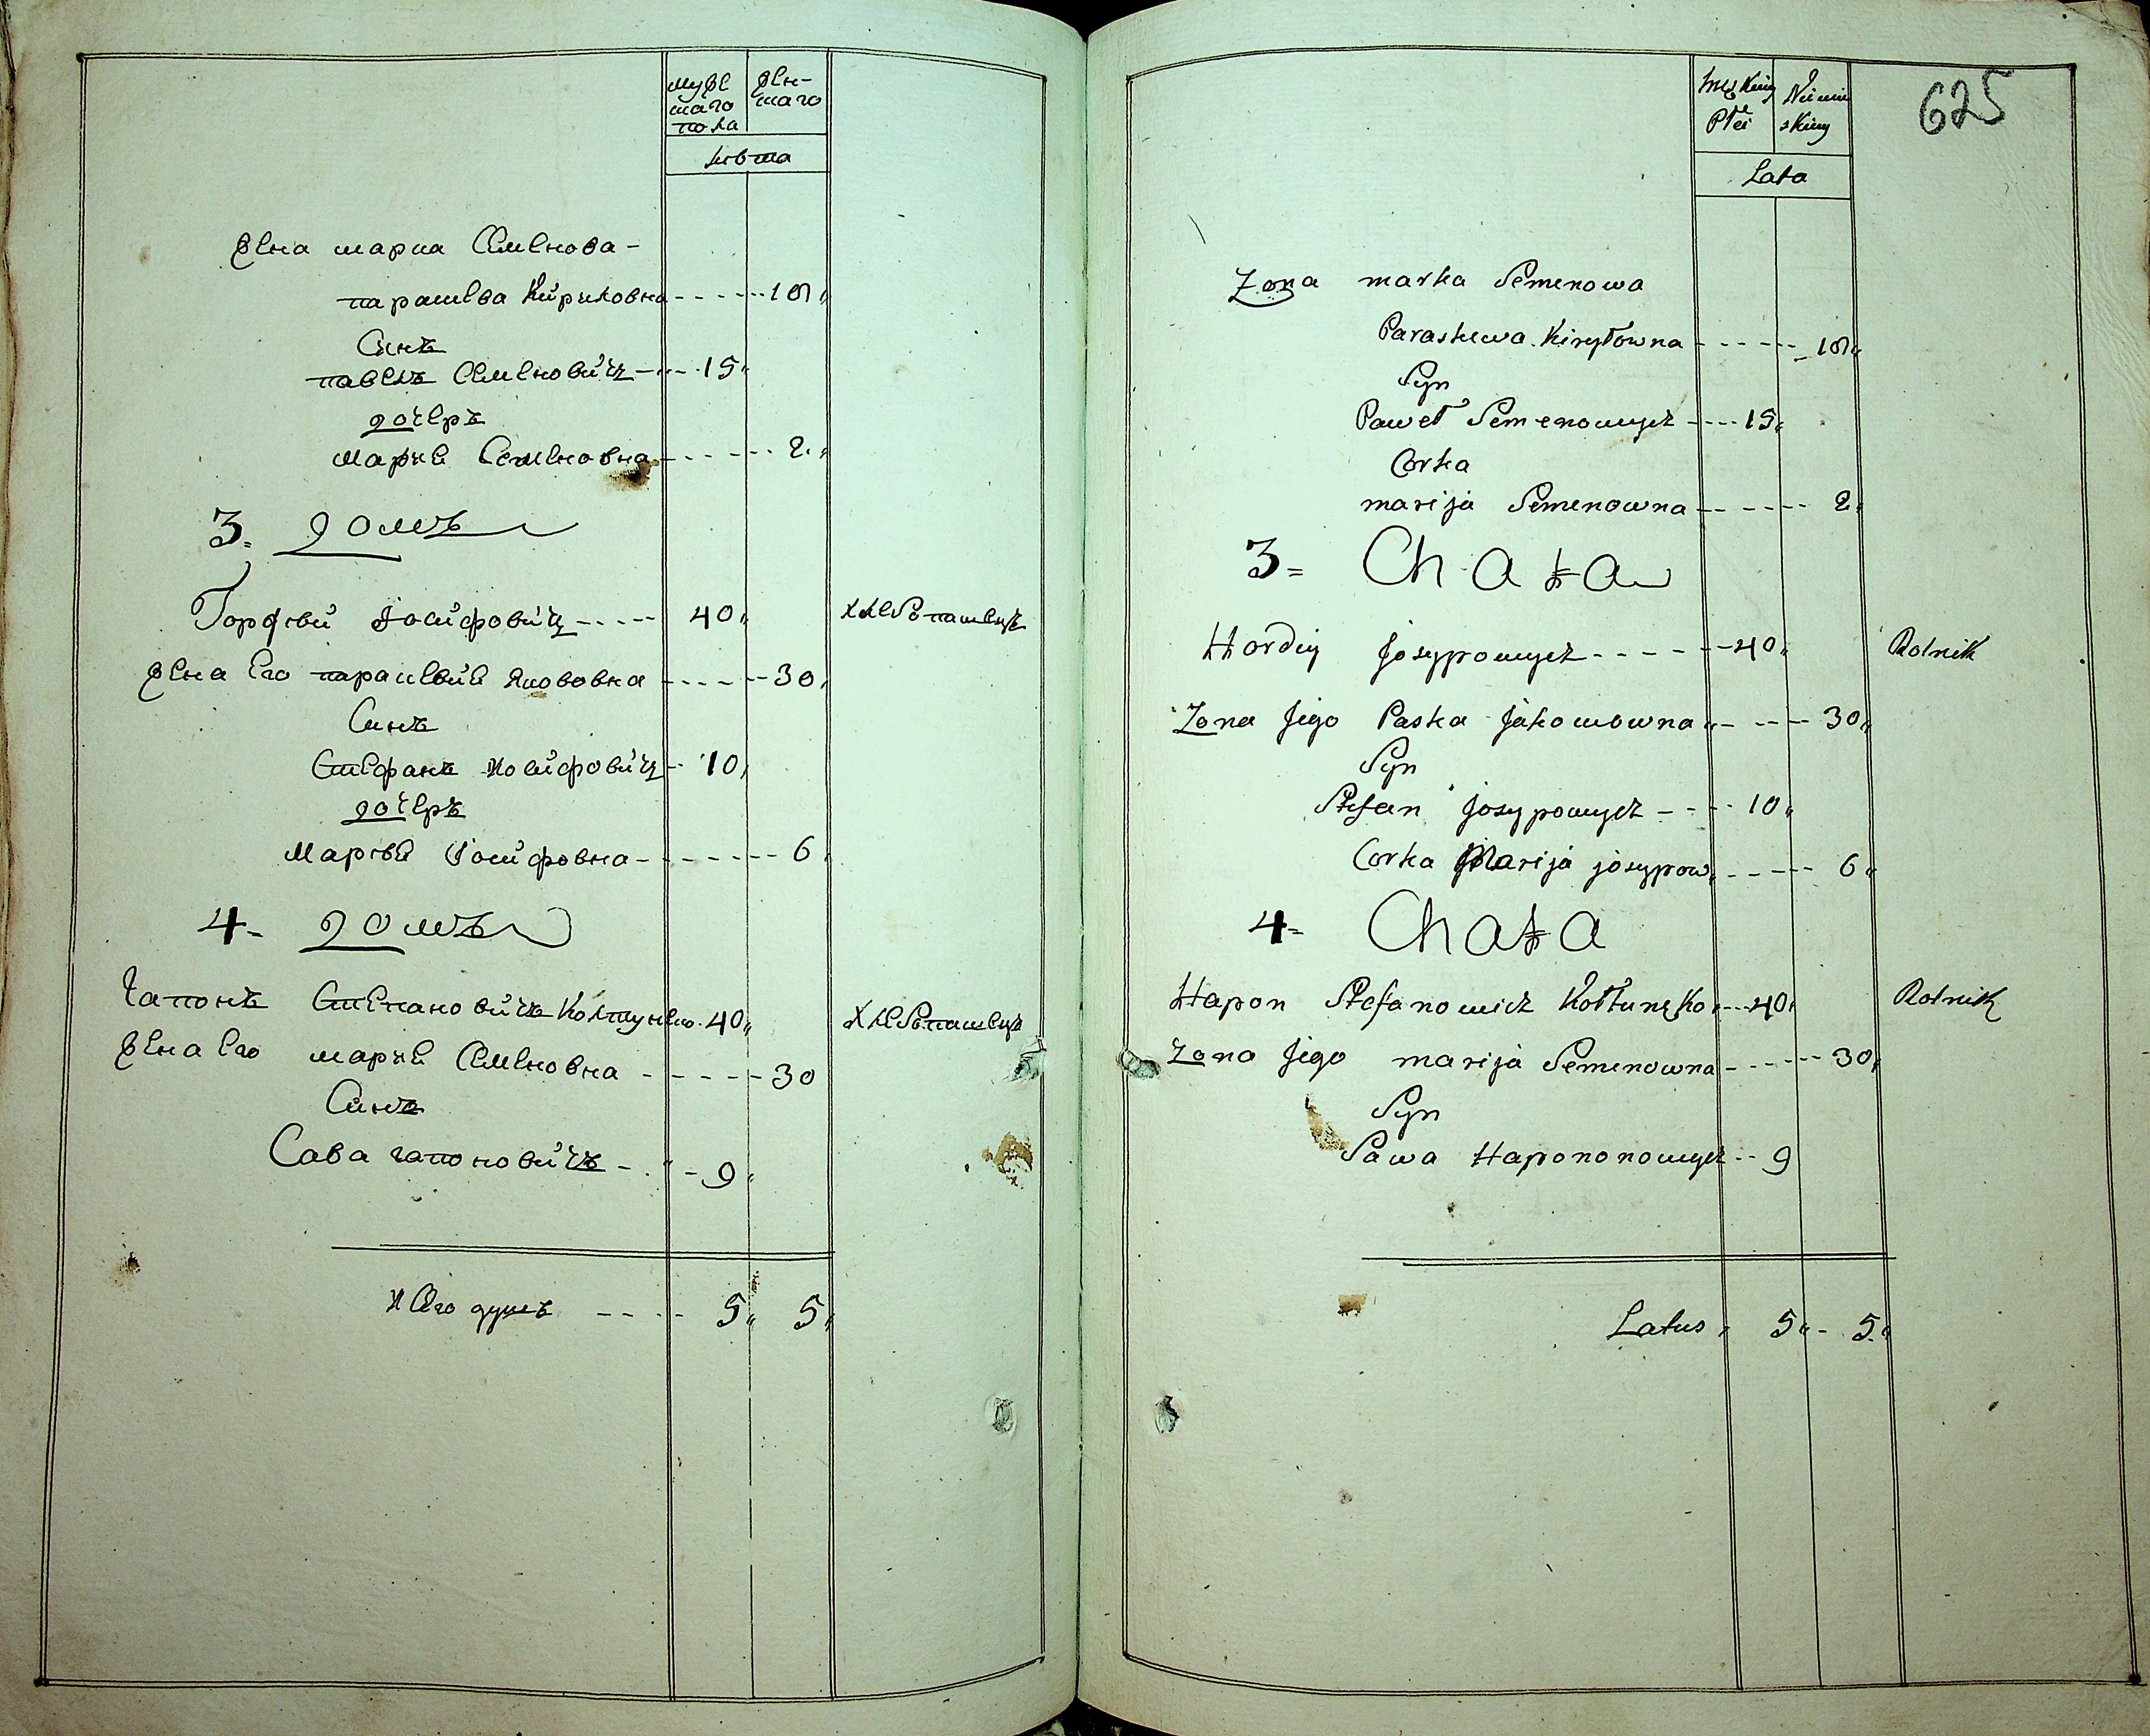 муже
шаго
пола
жен-
шаго
лѣта
жена мариа Семенова -
парашева Кирилов­на - - - - - 18
Синъ
павелъ Семеновичъ - - - 15
дочеръ
Марие Семеновна - - - - - 2
3. домъ
Гордѣй Іосифовичъ - - - - 40 хлебопашецъ
жена его парасковие Якововна - - - - 30
Синъ
Стефанъ Иосифовичъ - - 10
дочеръ
Марѣе Іосифовна - - - - - - 6
4- домъ
Гапонъ Степановичъ Колтунко 40 хлебопашецъ
жена его марие Семеновна - - - - - 30
Синъ
Сава гапоновичъ - - - 9
Итого душъ - - - - 5 5
625
Męskiey
Płci
Niewie
skiey
Lata
Zona marka Semenowa
Paraskewa Kiryłowna - - - - - - 18
Syn
Paweł Semenowycz - - - - 15
Corka
marija Semenowna - - - - - - 2
3= Chata
Hordiy Josypowycz - - - - - - 40 Rolnik
Zona Jego Paska Jakowowna - - - - 30
Syn
Stefan Josypowycz - - - - 10
Corka Marija josypow - - - - - 6
4= Chata
Hapon Stefanowicz Kołtunko - - - 40 Rolnik
Zona Jego marija Semenowna - - - - - 30
Syn
Sawa Hapononowycz - - 9
Latus 5 - 5